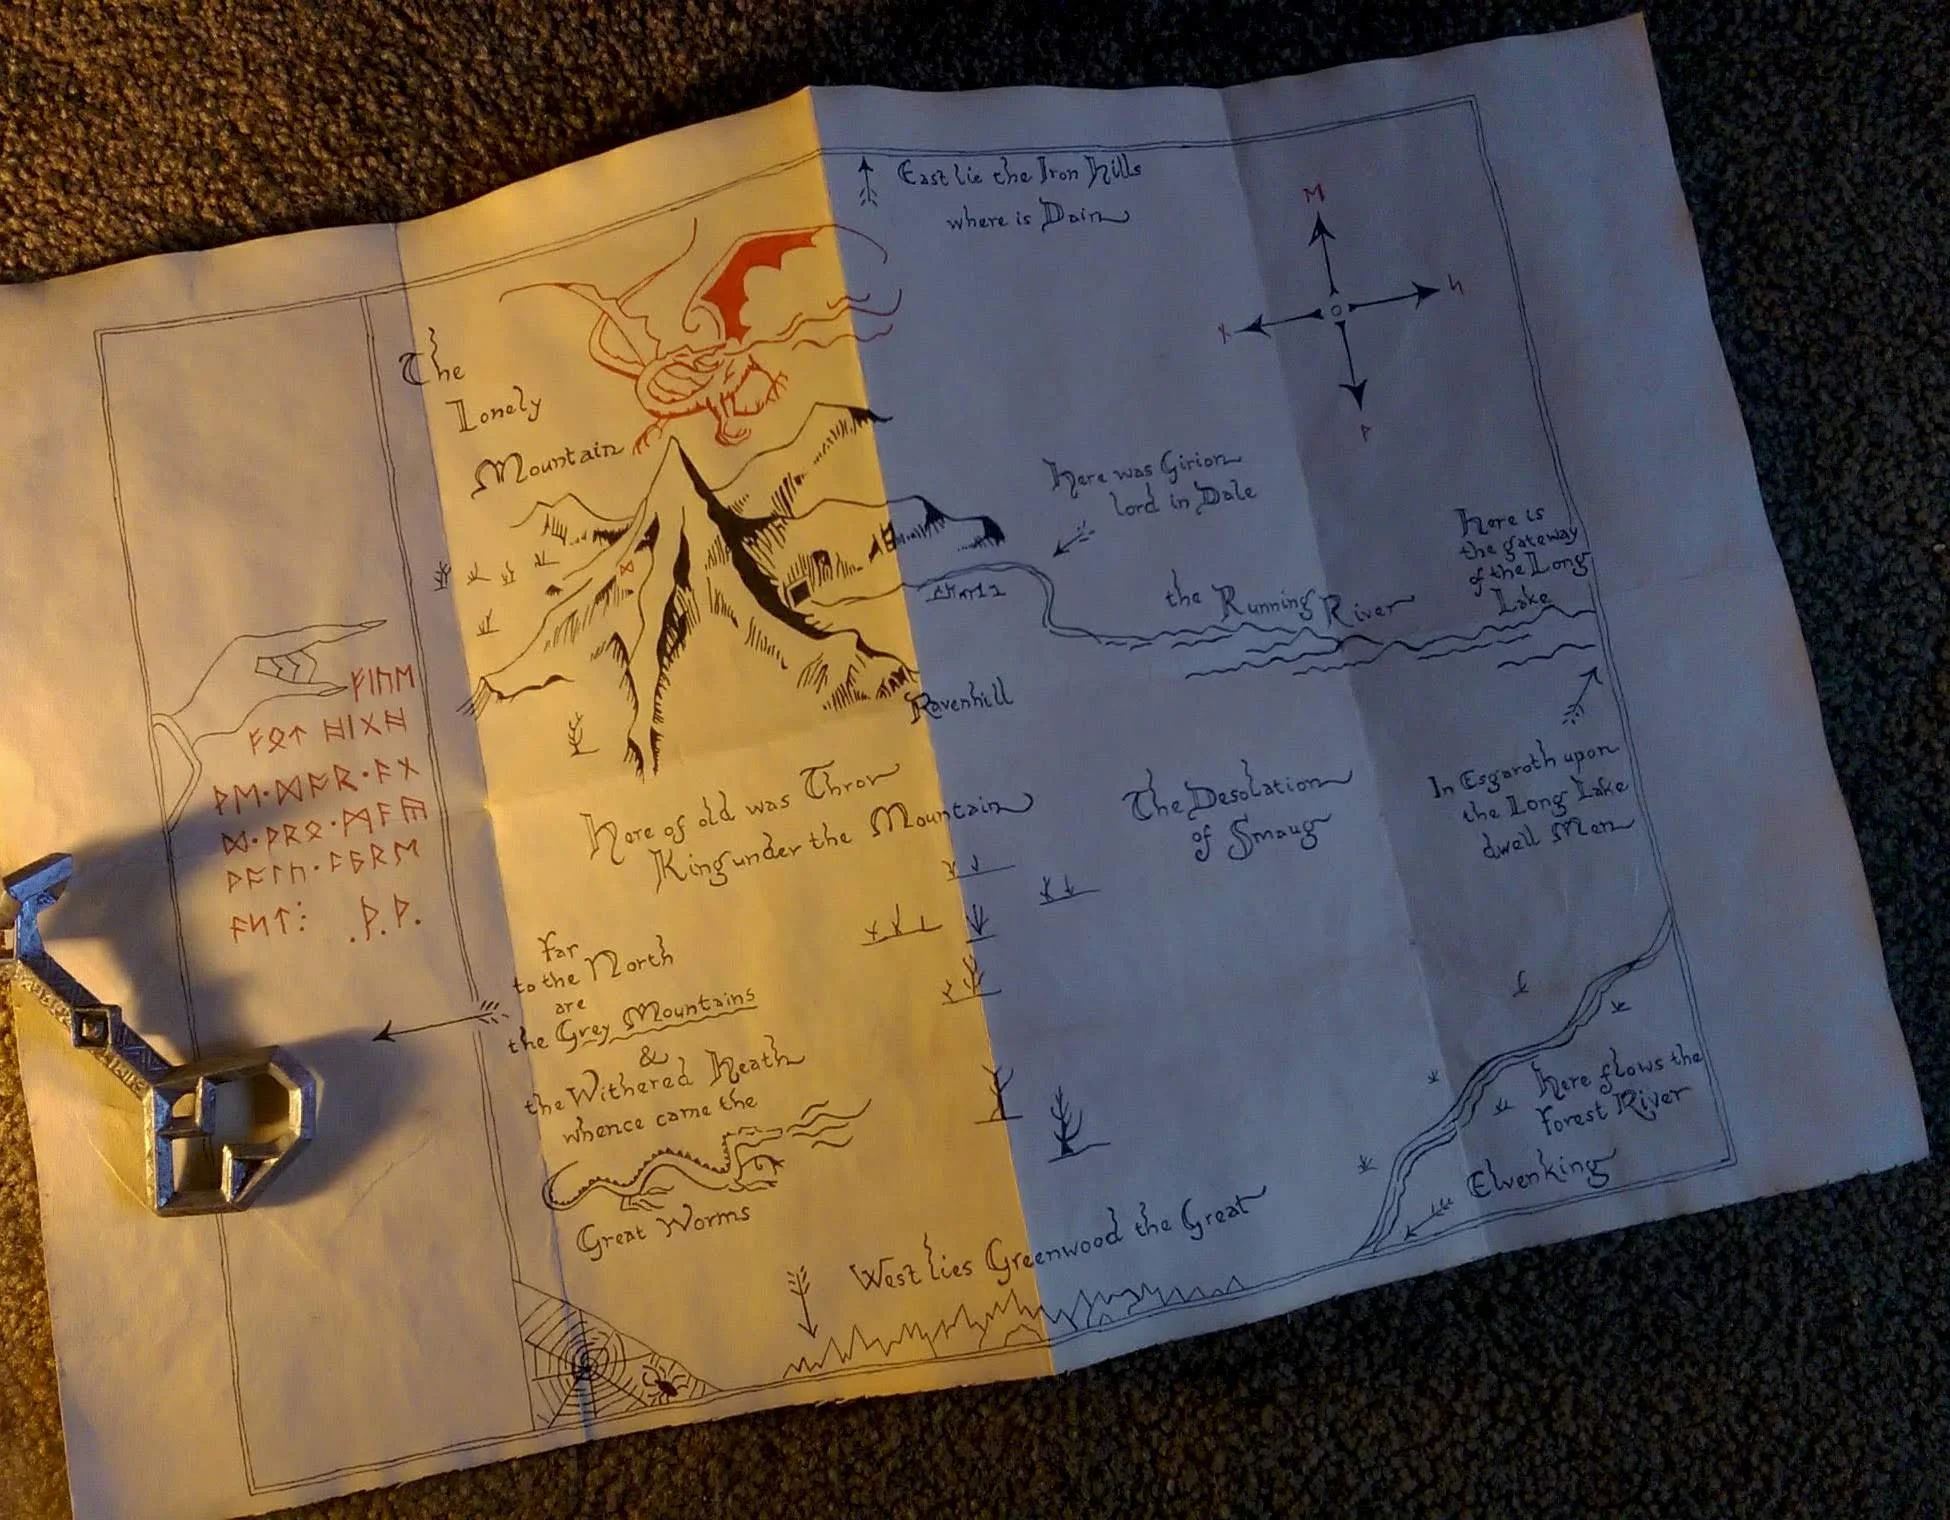 East lie the Iron Hills
where is Dain
ᛖ
ᚾ
ᛋ
ᚹ
The
Lonely
Mountain
ᛞ
Here was Girion
lord in Dale
Here is
the gateway
of the Long
Lake
the Running River
Ravenhill
ᚠᛁᚢᛖ
ᚠᚩᛏ ᚻᛁᚷᚻ
ᚦᛖ·ᛞᚩᚱ·ᚪᚾ
ᛞ·ᚦᚱᛟ·ᛗᚪᚣ
ᚹᚪᛚᚳ·ᚪᛒᚱᛖ
ᚪᛋᛏ⁝ .ᚦ.ᚦ.
Here of old was Thror
King under the Mountain
The Desolation
of Smaug
In Esgaroth upon
the Long Lake
dwell Men
Far
to the North
are
the Grey Mountains
&
the Withered Heath
whence came the
Great Worms
Here flows the
Forest River
Elvenking
West lies Greenwood the Great